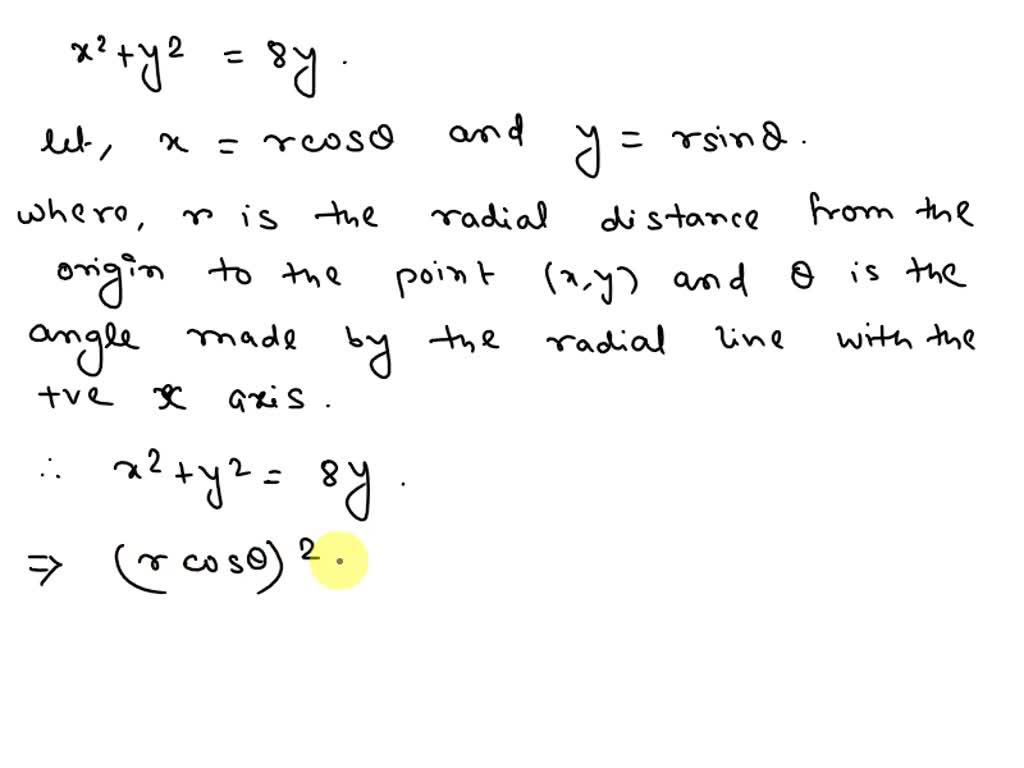 x² + y² = 8y.
let, x = rcosθ and y = rsinθ.
where, r is the radial distance from the
origin to the point (x,y) and θ is the
angle made by the radial line with the
+ve x axis.
∴ x² + y² = 8y.
⇒ (r cosθ)²